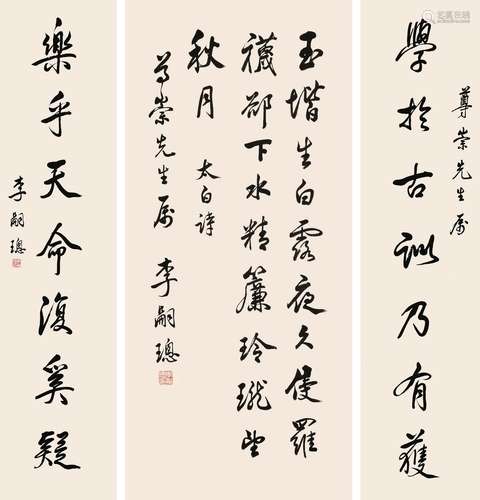 學於古訓乃有獲
尊崇先生属
玉堦生白露夜久侵羅
襪卻下水精簾玲瓏望
秋月 太白诗
尊崇先生属 李嗣璁
樂乎天命復奚疑
李嗣璁